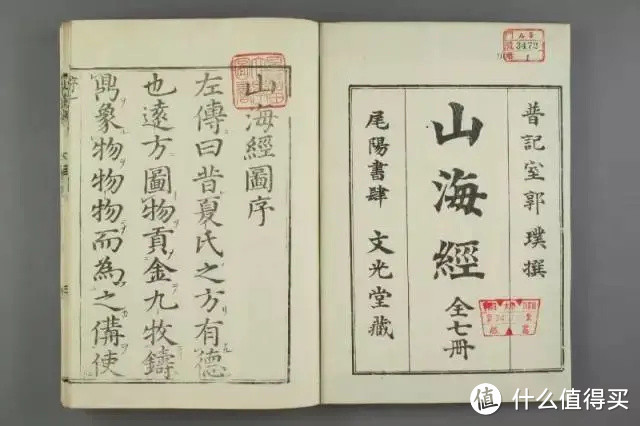 普記室郭璞撰
山海經 全七冊
尾陽書肆 文光堂藏
3472
1
山海經圖序
左傳曰昔夏氏之方有德
也遠方圖物貢金九牧鑄
鼎象物物物而為之備使
值 什么值得买